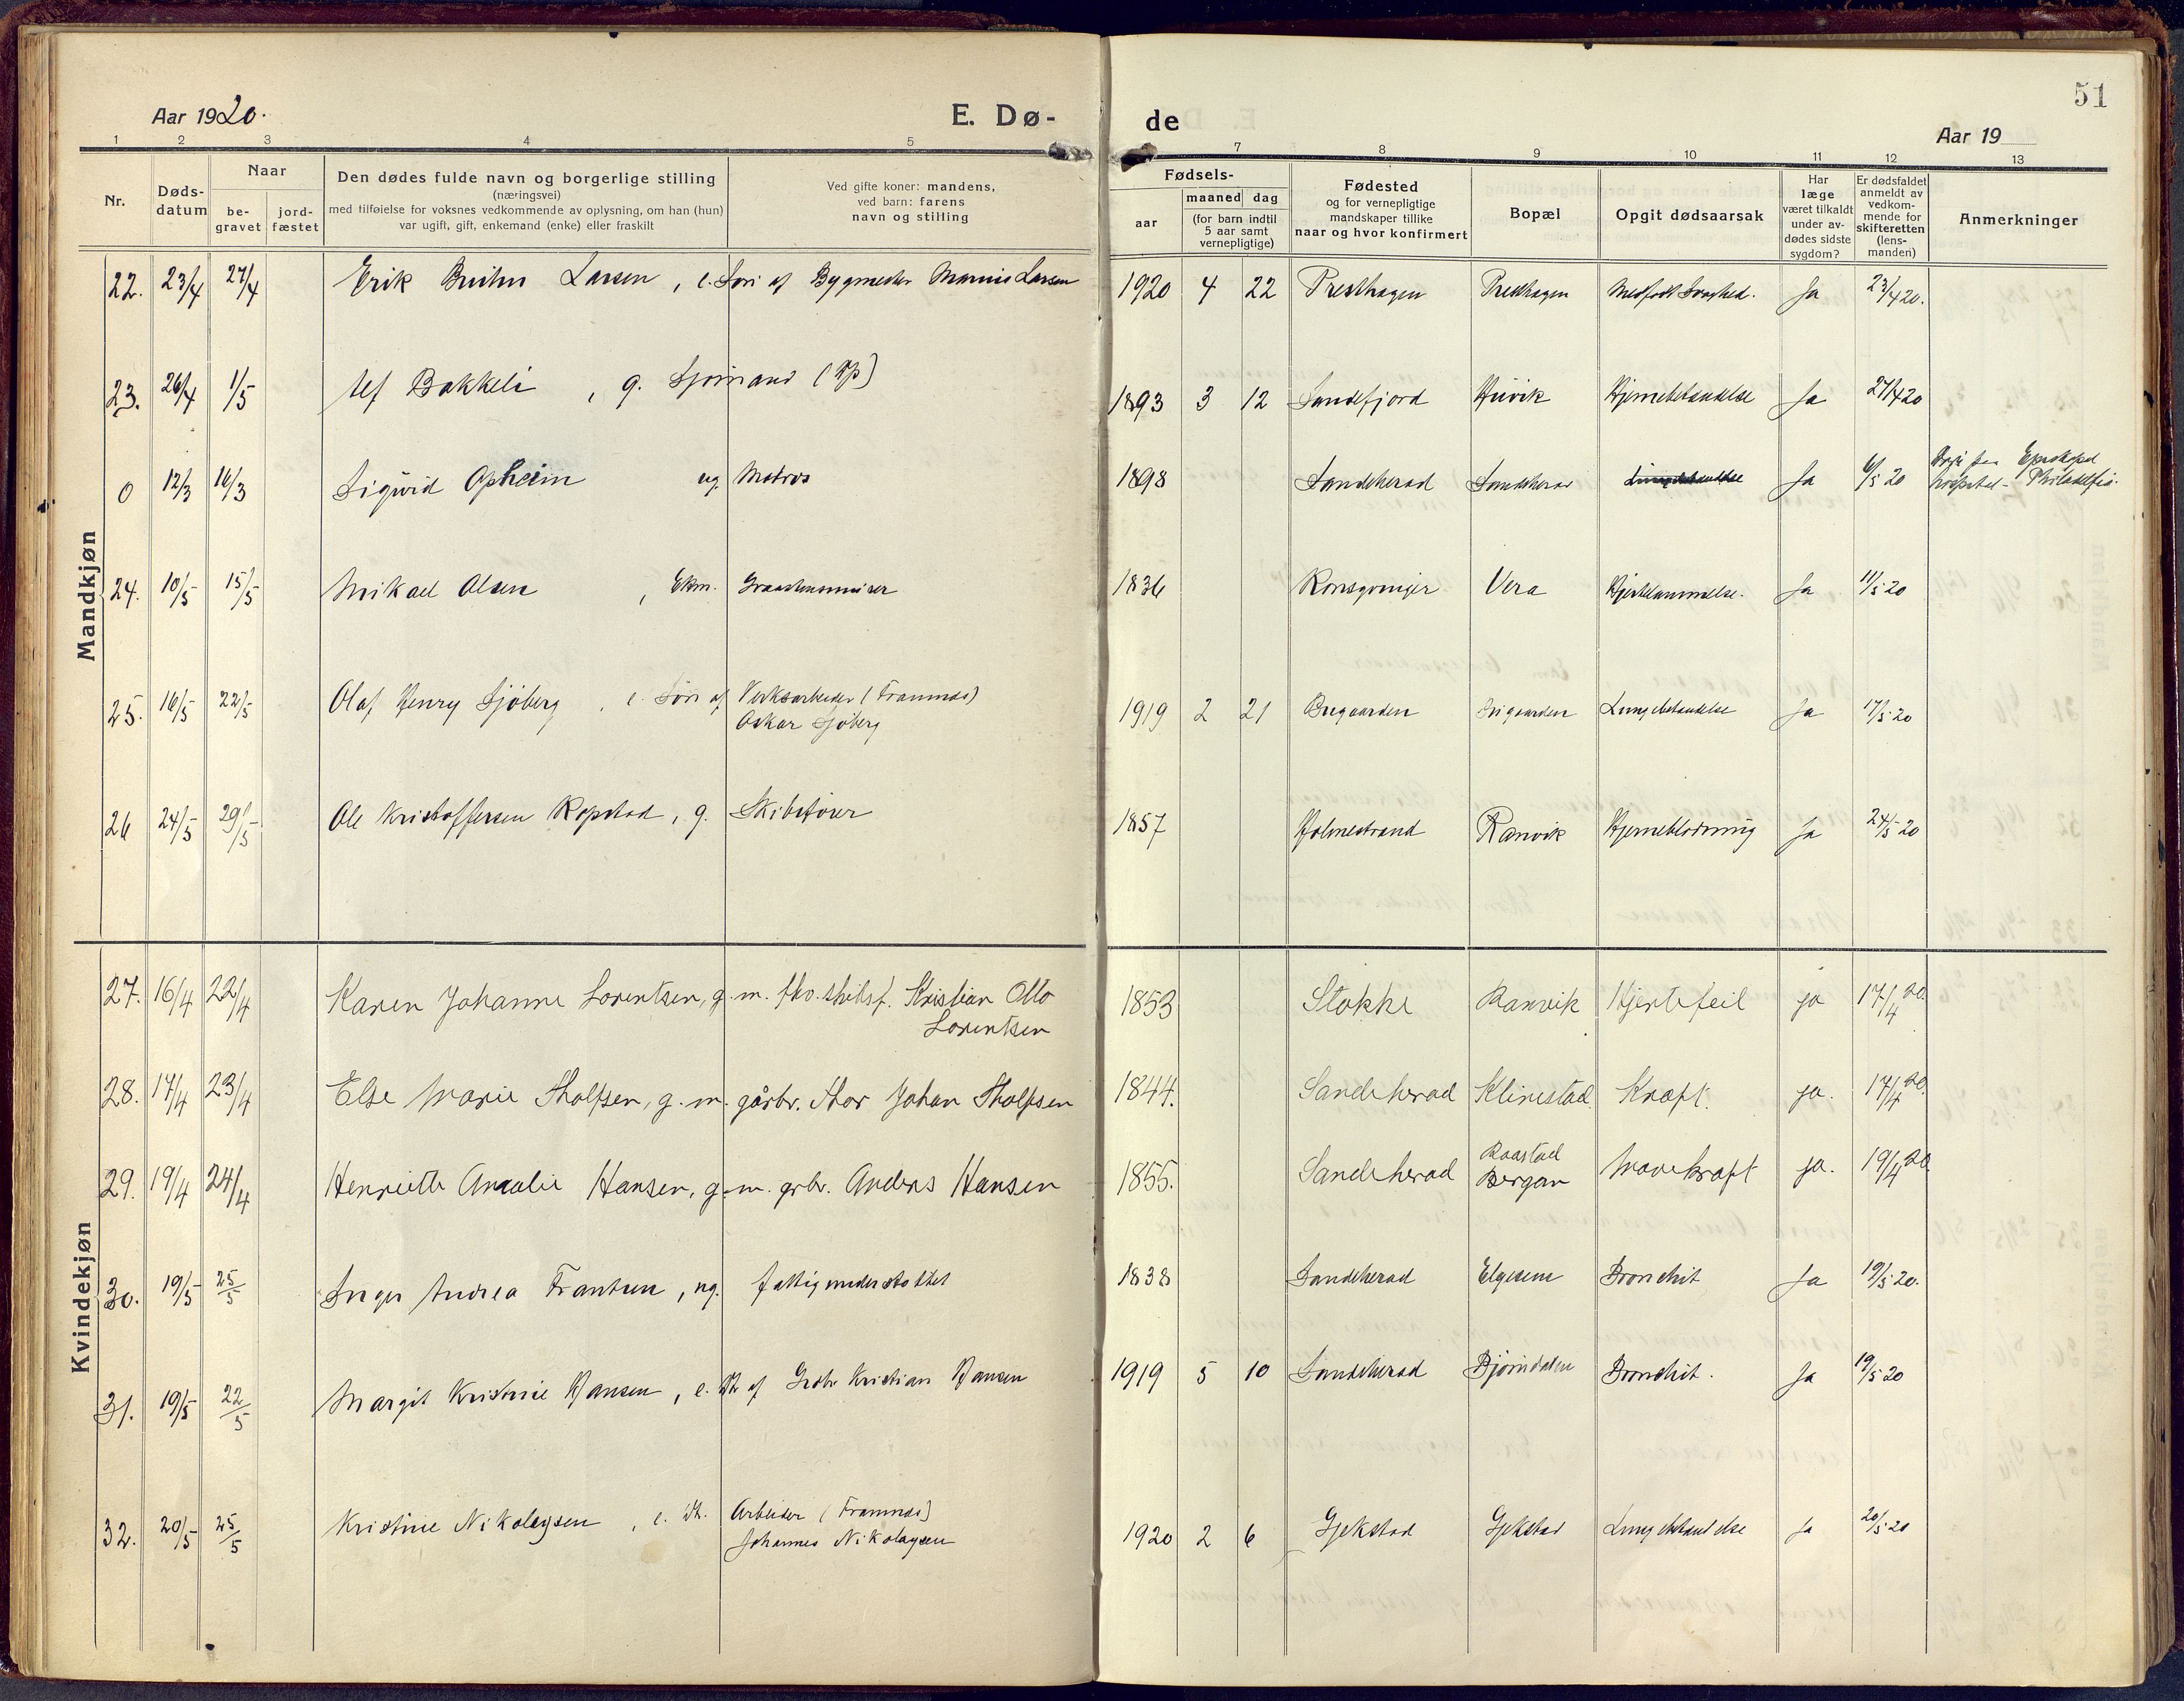 51
Aar 1920.
E. Dø-
de
Aar 19
1 2 3 4 5 7 8 9 10 11 12 13
Nr.
Døds-
datum
Naar
be-
gravet
jord-
fæstet
Den dødes fulde navn og borgerlige stilling
(næringsvei)
med tilføielse for voksnes vedkommende av oplysning, om han (hun)
var ugift, gift, enkemand (enke) eller fraskilt
Ved gifte koner: mandens,
ved barn: farens
navn og stilling
Fødsels-
aar
maaned dag
(for barn indtil
5 aar samt
vernepligtige)
Fødested
og for vernepligtige
mandskaper tillike
naar og hvor konfirmert
Bopæl
Opgit dødsaarsak
Har
læge
været tilkaldt
under av-
dødes sidste
sygdom?
Er dødsfaldet
anmeldt av
vedkom-
mende for
skifteretten
(lens-
manden)
Anmerkninger
Mandkjøn
22. 23/4 27/4 Erik Bruhn Larsen, e. Søn af Bygmester Larsen 1920 4 22 Presthagen Presthagen Medfødt Svaghed. Ja 23/4 20.
23. 26/4 1/5 Alf Bakkeli, g. Sjømand 1893 3 12 Sandefjord Huvik Hjernebetændelse Ja 27/4 20
0 12/3 16/3 Sigurd Opheim ug Matros 1898 Sandeherad Sandeherad Lungebetændelse Ja 6/5 20 Episkopal
hospital - Philadelfia.
24. 10/5 15/5 Mikael Olsen, Ekm. Graastensmurer 1836 Kongsvinger Vera Hjertelammelse. Ja 11/5 20
25. 16/5 22/5 Olaf Henry Sjöberg, e. Søn af Verksarbeider (Framnæs)
Oskar Sjöberg 1919 2 21 Bugaarden Bugaarden Lungebetændelse Ja 17/5 20
26 24/5 29/5 Ole Kristoffersen Ropstad, g. Skibsfører 1857 Holmestrand Ranvik Hjerneblødning Ja 24/5 20
Kvindekjøn
27. 16/4 22/4 Karen Johanne Lorentsen, g. m. fhv. skibsf. Kristian Otto
Lorentsen 1853 Stokke Ranvik Hjertefeil ja 17/4 20.
28. 17/4 23/4 Else Marie Tholfsen, g. m. gårbr. Thor Johan Tholfsen 1844. Sandeherad Klinestad. Kræft. ja. 17/4 20.
29. 19/4 24/4 Henriette Amalie Hansen, g. m. grbr. Anders Hansen 1855. Sandeherad Raastad
Bergan Mavekræft ja. 19/4 20
30. 19/5 25/5 Inger Andrea Frantsen, ug. fattigunderstøttet 1838 Sandeherad Elgesem Bronchit Ja 19/5 20.
31. 19/5 22/5 Margit Kristine Hansen, e. Dt. af Grdbr Kristian Hansen 1919 5 10 Sandeherad Bjørndalen Bronchit. Ja 19/5 20
32. 20/5 25/5 Kristine Nikolaysen, e. Dt. Arbeider (Framnæs)
Johannes Nikolaysen 1920 2 6 Gjekstad Gjekstad Lungebetændelse Ja 20/5 20